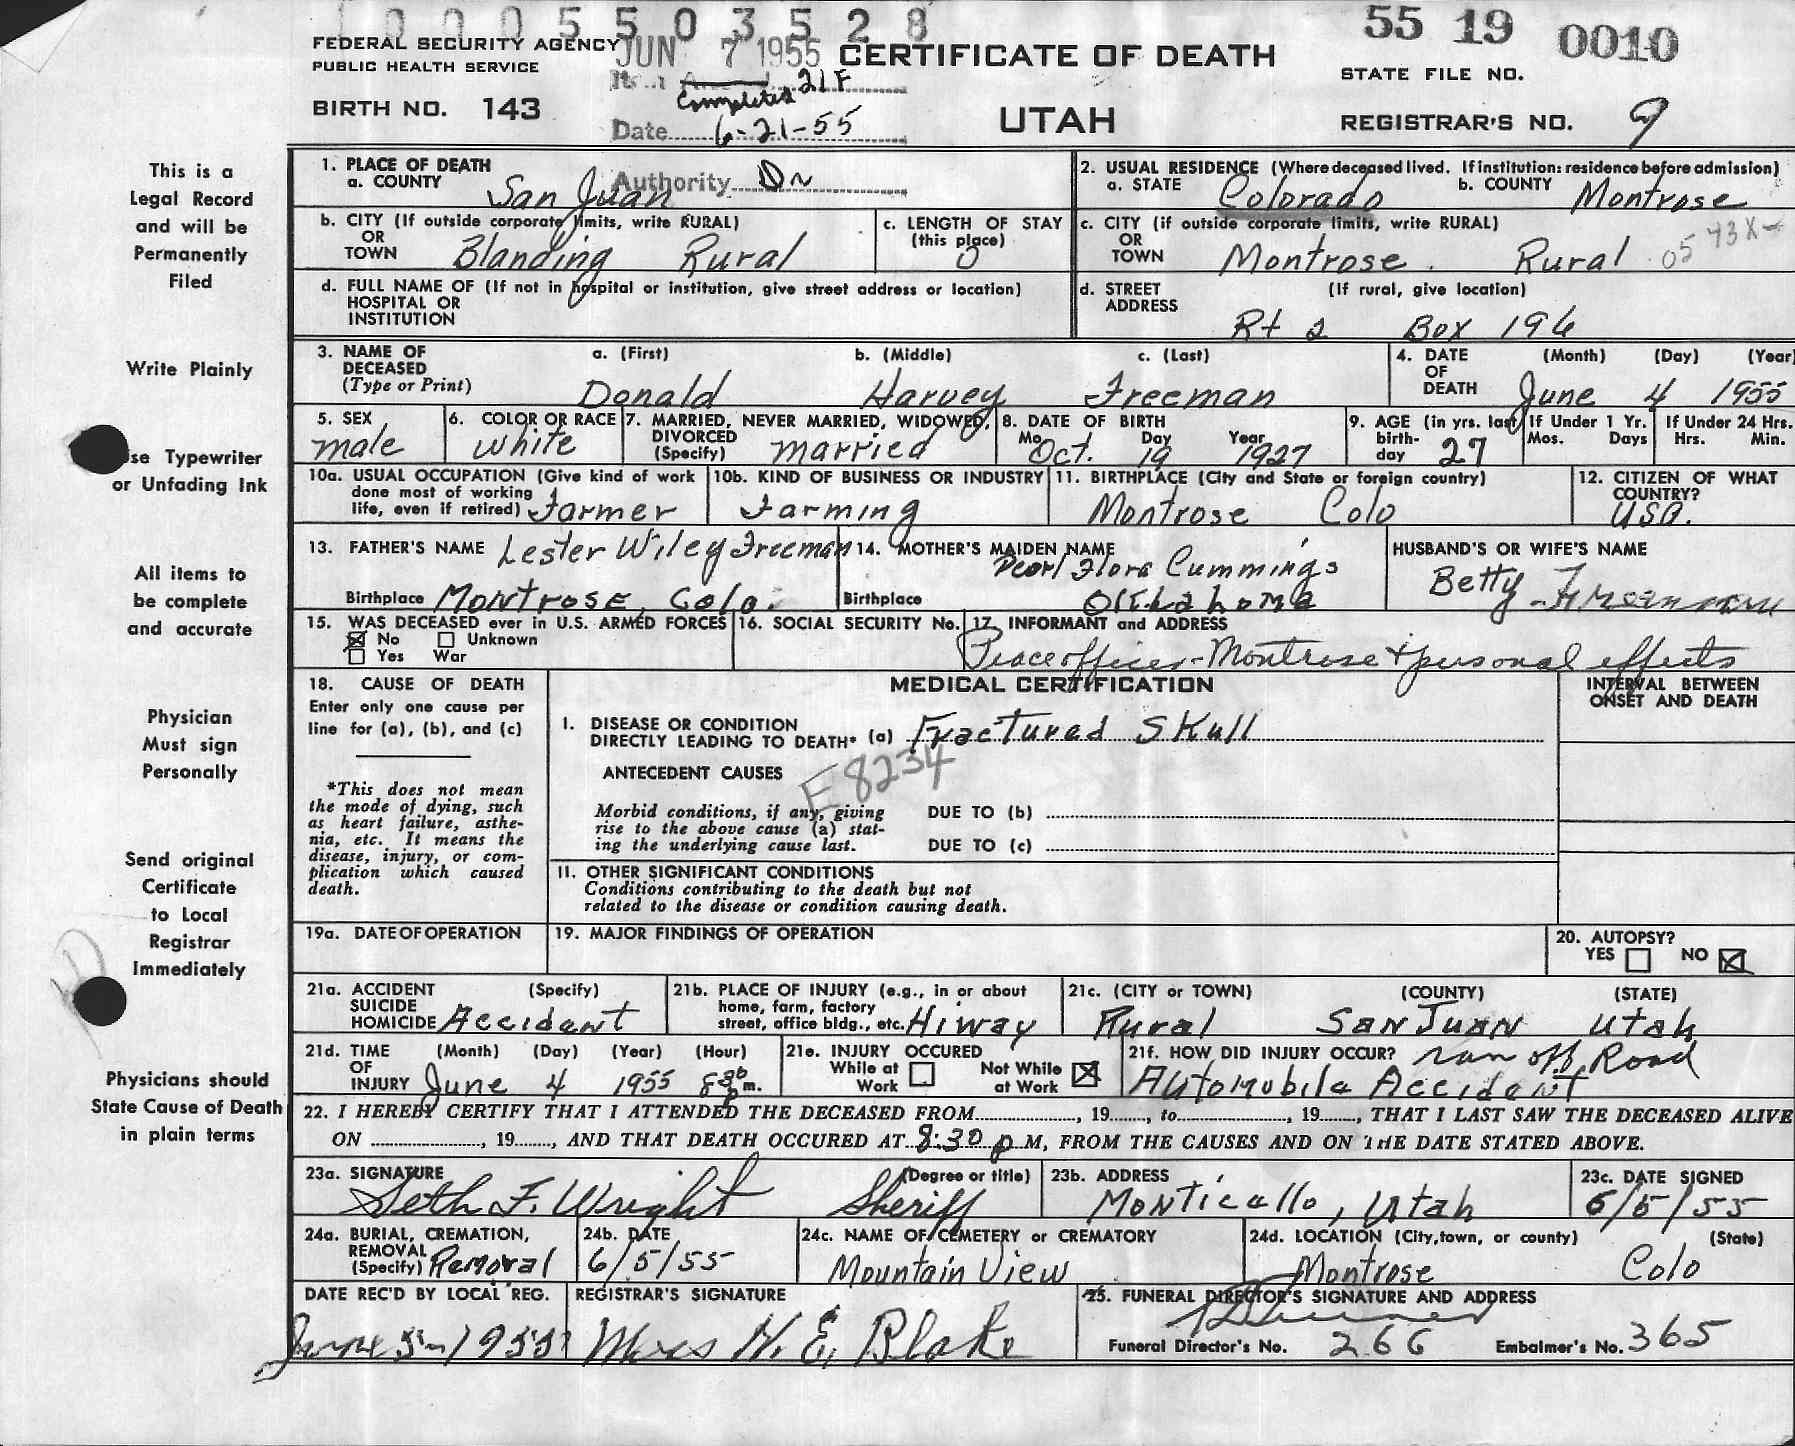 1 0 0 0 5 5 0 3 5 2 8
55 19 0010
FEDERAL SECURITY AGENCY JUN 7 1955 CERTIFICATE OF DEATH
PUBLIC HEALTH SERVICE
STATE FILE NO.
Completed 21F
BIRTH NO. 143
Date 6-21-55
UTAH
REGISTRAR'S NO. 9
Authority Dr
This is a
Legal Record
and will be
Permanently
Filed
Write Plainly
se Typewriter
or Unfading Ink
All items to
be complete
and accurate
Physician
Must sign
Personally
Send original
Certificate
to Local
Registrar
Immediately
Physicians should
State Cause of Death
in plain terms
1. PLACE OF DEATH
a. COUNTY San Juan
2. USUAL RESIDENCE (Where deceased lived. If institution: residence before admission)
a. STATE Colorado b. COUNTY Montrose
b. CITY (If outside corporate limits, write RURAL)
OR
TOWN Blanding Rural
c. LENGTH OF STAY
(this place)
0
c. CITY (if outside corporate limits, write RURAL)
OR
TOWN Montrose. Rural
d. FULL NAME OF (If not in hospital or institution, give street address or location)
HOSPITAL OR
INSTITUTION
d. STREET (If rural, give location)
ADDRESS
Rt 2 Box 196
3. NAME OF a. (First) b. (Middle) c. (Last)
DECEASED
(Type or Print) Donald Harvey Freeman
4. DATE (Month) (Day) (Year)
OF
DEATH June 4 1955
5. SEX
male
6. COLOR OR RACE
white
7. MARRIED, NEVER MARRIED, WIDOWED,
DIVORCED
(Specify) married
8. DATE OF BIRTH
Mo. Day Year
Oct. 19 1927
9. AGE (in yrs. last
birth-
day 27
If Under 1 Yr.
Mos. Days
If Under 24 Hrs.
Hrs. Min.
10a. USUAL OCCUPATION (Give kind of work
done most of working
life, even if retired) Farmer
10b. KIND OF BUSINESS OR INDUSTRY
Farming
11. BIRTHPLACE (City and State or foreign country)
Montrose Colo
12. CITIZEN OF WHAT
COUNTRY?
USA.
13. FATHER'S NAME Lester Wiley Freeman
Birthplace Montrose, Colo.
14. MOTHER'S MAIDEN NAME
Pearl Flora Cummings
Birthplace Oklahoma
HUSBAND'S OR WIFE'S NAME
Betty Freeman
15. WAS DECEASED ever in U.S. ARMED FORCES
No Unknown
Yes War
16. SOCIAL SECURITY No.
17. INFORMANT and ADDRESS
Peace officer-Montrose + personal effects
18. CAUSE OF DEATH
Enter only one cause per
line for (a), (b), and (c)
*This does not mean
the mode of dying, such
as heart failure, asthe-
nia, etc. It means the
disease, injury, or com-
plication which caused
death.
MEDICAL CERTIFICATION
INTERVAL BETWEEN
ONSET AND DEATH
I. DISEASE OR CONDITION
DIRECTLY LEADING TO DEATH* (a) Fractured Skull
ANTECEDENT CAUSES E8234
Morbid conditions, if any, giving
rise to the above cause (a) stat-
ing the underlying cause last.
DUE TO (b)
DUE TO (c)
II. OTHER SIGNIFICANT CONDITIONS
Conditions contributing to the death but not
related to the disease or condition causing death.
19a. DATE OF OPERATION
19. MAJOR FINDINGS OF OPERATION
20. AUTOPSY?
YES NO
21a. ACCIDENT (Specify)
SUICIDE
HOMICIDE Accident
21b. PLACE OF INJURY (e.g., in or about
home, farm, factory
street, office bldg., etc. Hiway
21c. (CITY or TOWN) (COUNTY) (STATE)
Rural San Juan Utah
21d. TIME (Month) (Day) (Year) (Hour)
OF
INJURY June 4 1955 8 30 p m.
21e. INJURY OCCURED
While at Not While
Work at Work
21f. HOW DID INJURY OCCUR? ran off Road
Automobile Accident
22. I HEREBY CERTIFY THAT I ATTENDED THE DECEASED FROM , 19 , to , 19 , THAT I LAST SAW THE DECEASED ALIVE
ON , 19 , AND THAT DEATH OCCURED AT 8:30 p M, FROM THE CAUSES AND ON THE DATE STATED ABOVE.
23a. SIGNATURE (Degree or title)
Seth F. Wright Sheriff
23b. ADDRESS
Monticello, Utah
23c. DATE SIGNED
6/5/55
24a. BURIAL, CREMATION,
REMOVAL
(Specify) Removal
24b. DATE
6/5/55
24c. NAME OF CEMETERY or CREMATORY
Mountain View
24d. LOCATION (City, town, or county) (State)
Montrose Colo
DATE REC'D BY LOCAL REG.
June 5-1955
REGISTRAR'S SIGNATURE
Mrs H. E. Blake
25. FUNERAL DIRECTOR'S SIGNATURE AND ADDRESS
Funeral Director's No. 266 Embalmer's No. 365